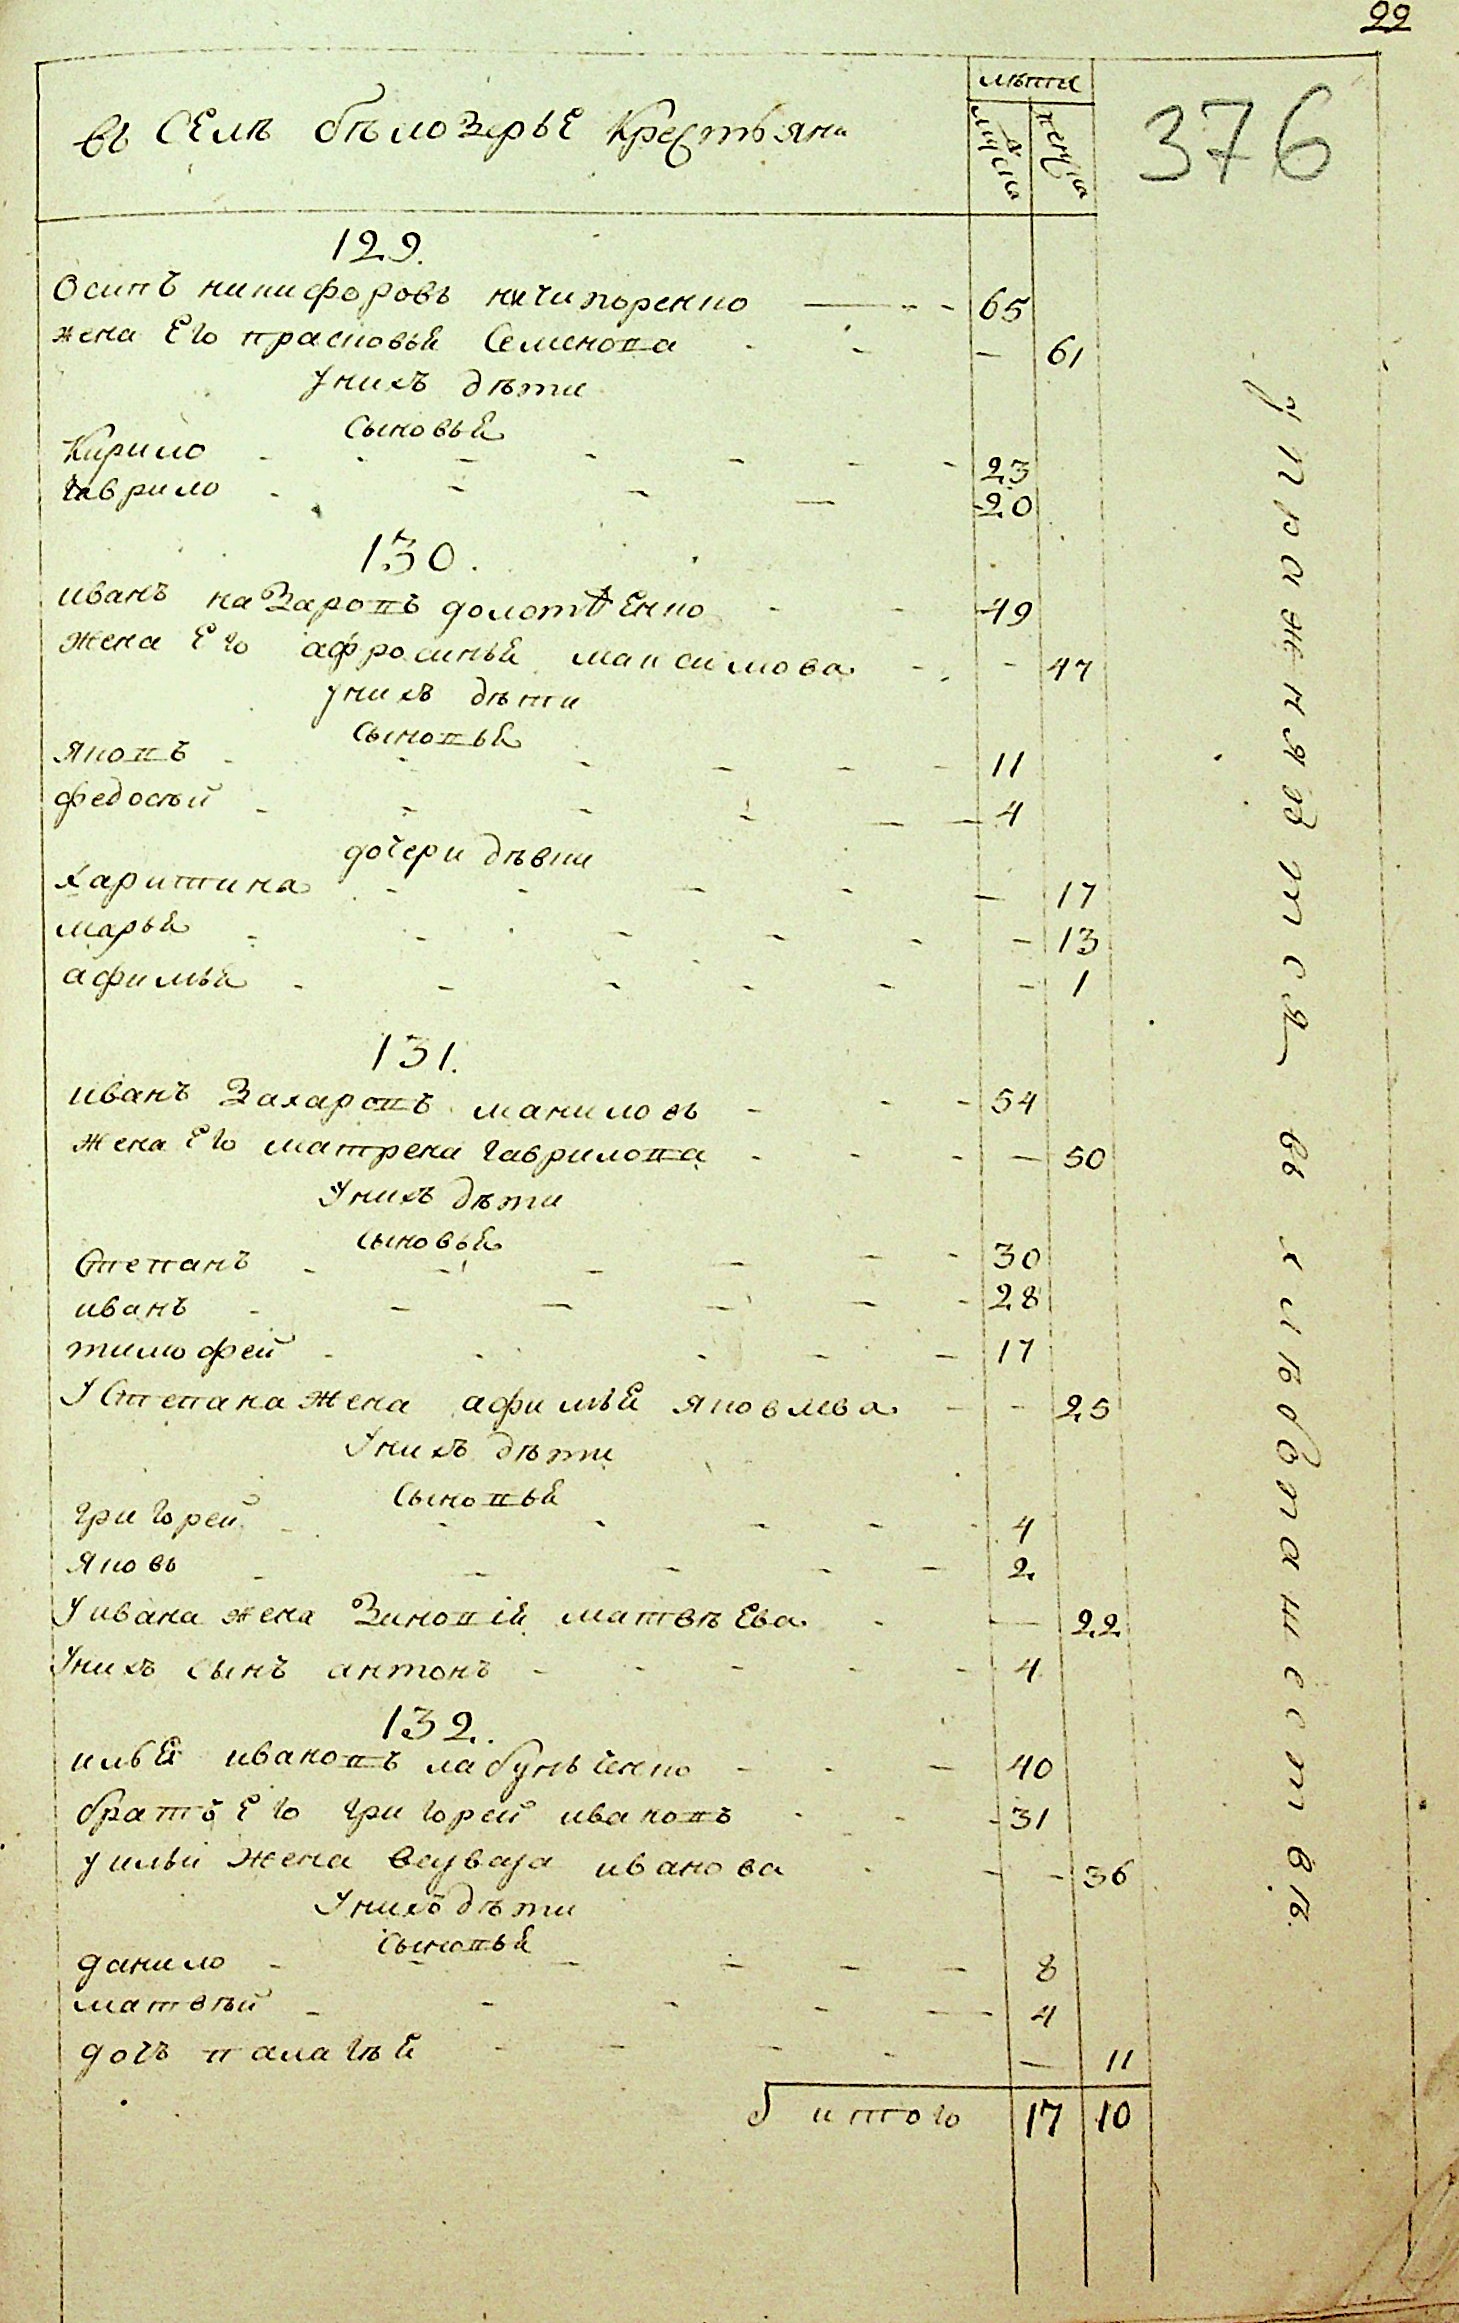 22
376
въ селѣ бѣлозерье крестьяне
лѣты
мужска
женска
129.
осипъ никифоровъ ничипоренко 65
жена его прасковья семенова 61
у нихъ дѣти
сыновья
кирило 23
гаврило 20
130.
иванъ назаровъ долотѣенко 49
жена его афросинья максимова 47
у нихъ дѣти
сыновья
яковъ 11
федосѣй 4
дочери дѣвки
харитина 17
марья 13
афимья 1
131.
иванъ захаровъ маниловъ 54
жена его матрена гаврилова 50
у нихъ дѣти
сыновья
степанъ 30
иванъ 28
тимофей 17
у степана жена афимья яковлева 25
у нихъ дѣти
сыновья
григорей 4
яковъ 2
у ивана жена зиновія матвѣева 22
у нихъ сынъ антонъ 4
132.
илья ивановъ лабунченко 40
братъ его григорей ивановъ 31
у ильи жена иванова 36
у нихъ дѣти
сыновья
данило 8
матвѣй 4
дочъ палагѣя 11
итого 17 10
упражняются въ хлѣбопашествѣ.